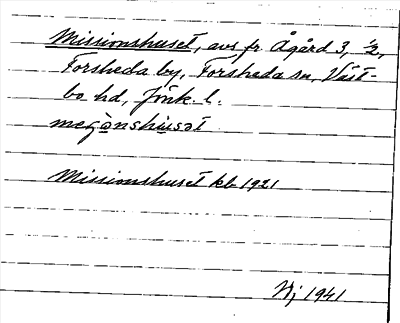 Missionshuset, avs. fr. Ågård 3, ½,
Forsheda by, Forsheda sn, Väst-
bo hd, Jönk. l.
megǫnshusət
Missionshuset kb 1921
Nj 1941